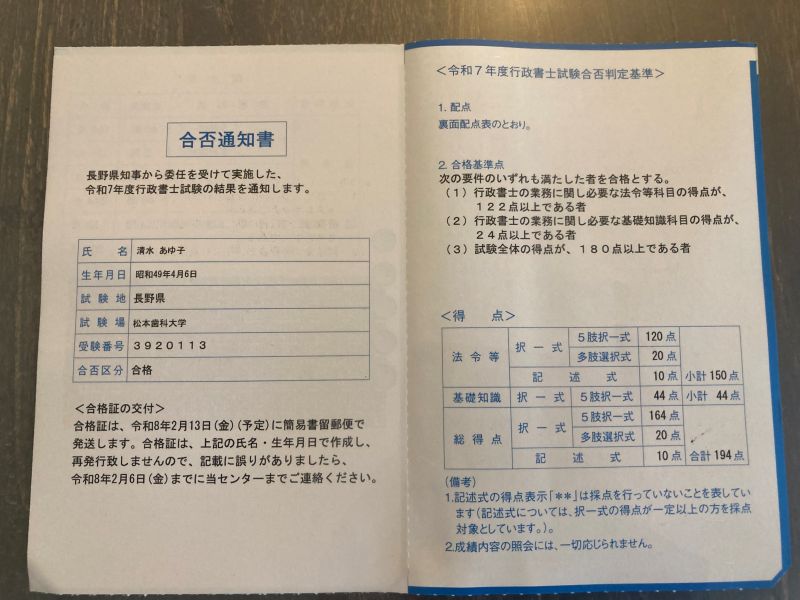 合否通知書
長野県知事から委任を受けて実施した、
令和7年度行政書士試験の結果を通知します。
氏 名 清水 あゆ子
生年月日 昭和49年4月6日
試験地 長野県
試験場 松本歯科大学
受験番号 3920113
合否区分 合格
＜合格証の交付＞
合格証は、令和8年2月13日(金)(予定)に簡易書留郵便で
発送します。合格証は、上記の氏名・生年月日で作成し、
再発行致しませんので、記載に誤りがありましたら、
令和8年2月6日(金)までに当センターまでご連絡ください。
＜令和7年度行政書士試験合否判定基準＞
1. 配点
裏面配点表のとおり。
2. 合格基準点
次の要件のいずれも満たした者を合格とする。
(1) 行政書士の業務に関し必要な法令等科目の得点が、
122点以上である者
(2) 行政書士の業務に関し必要な基礎知識科目の得点が、
24点以上である者
(3) 試験全体の得点が、180点以上である者
＜得 点＞
法令等 択一式 5肢択一式 120点
多肢選択式 20点
記述式 10点 小計 150点
基礎知識 択一式 5肢択一式 44点 小計 44点
総得点 択一式 5肢択一式 164点
多肢選択式 20点
記述式 10点 合計 194点
(備考)
1.記述式の得点表示「＊＊」は採点を行っていないことを表してい
ます(記述式については、択一式の得点が一定以上の方を採点
対象としています。)。
2.成績内容の照会には、一切応じられません。